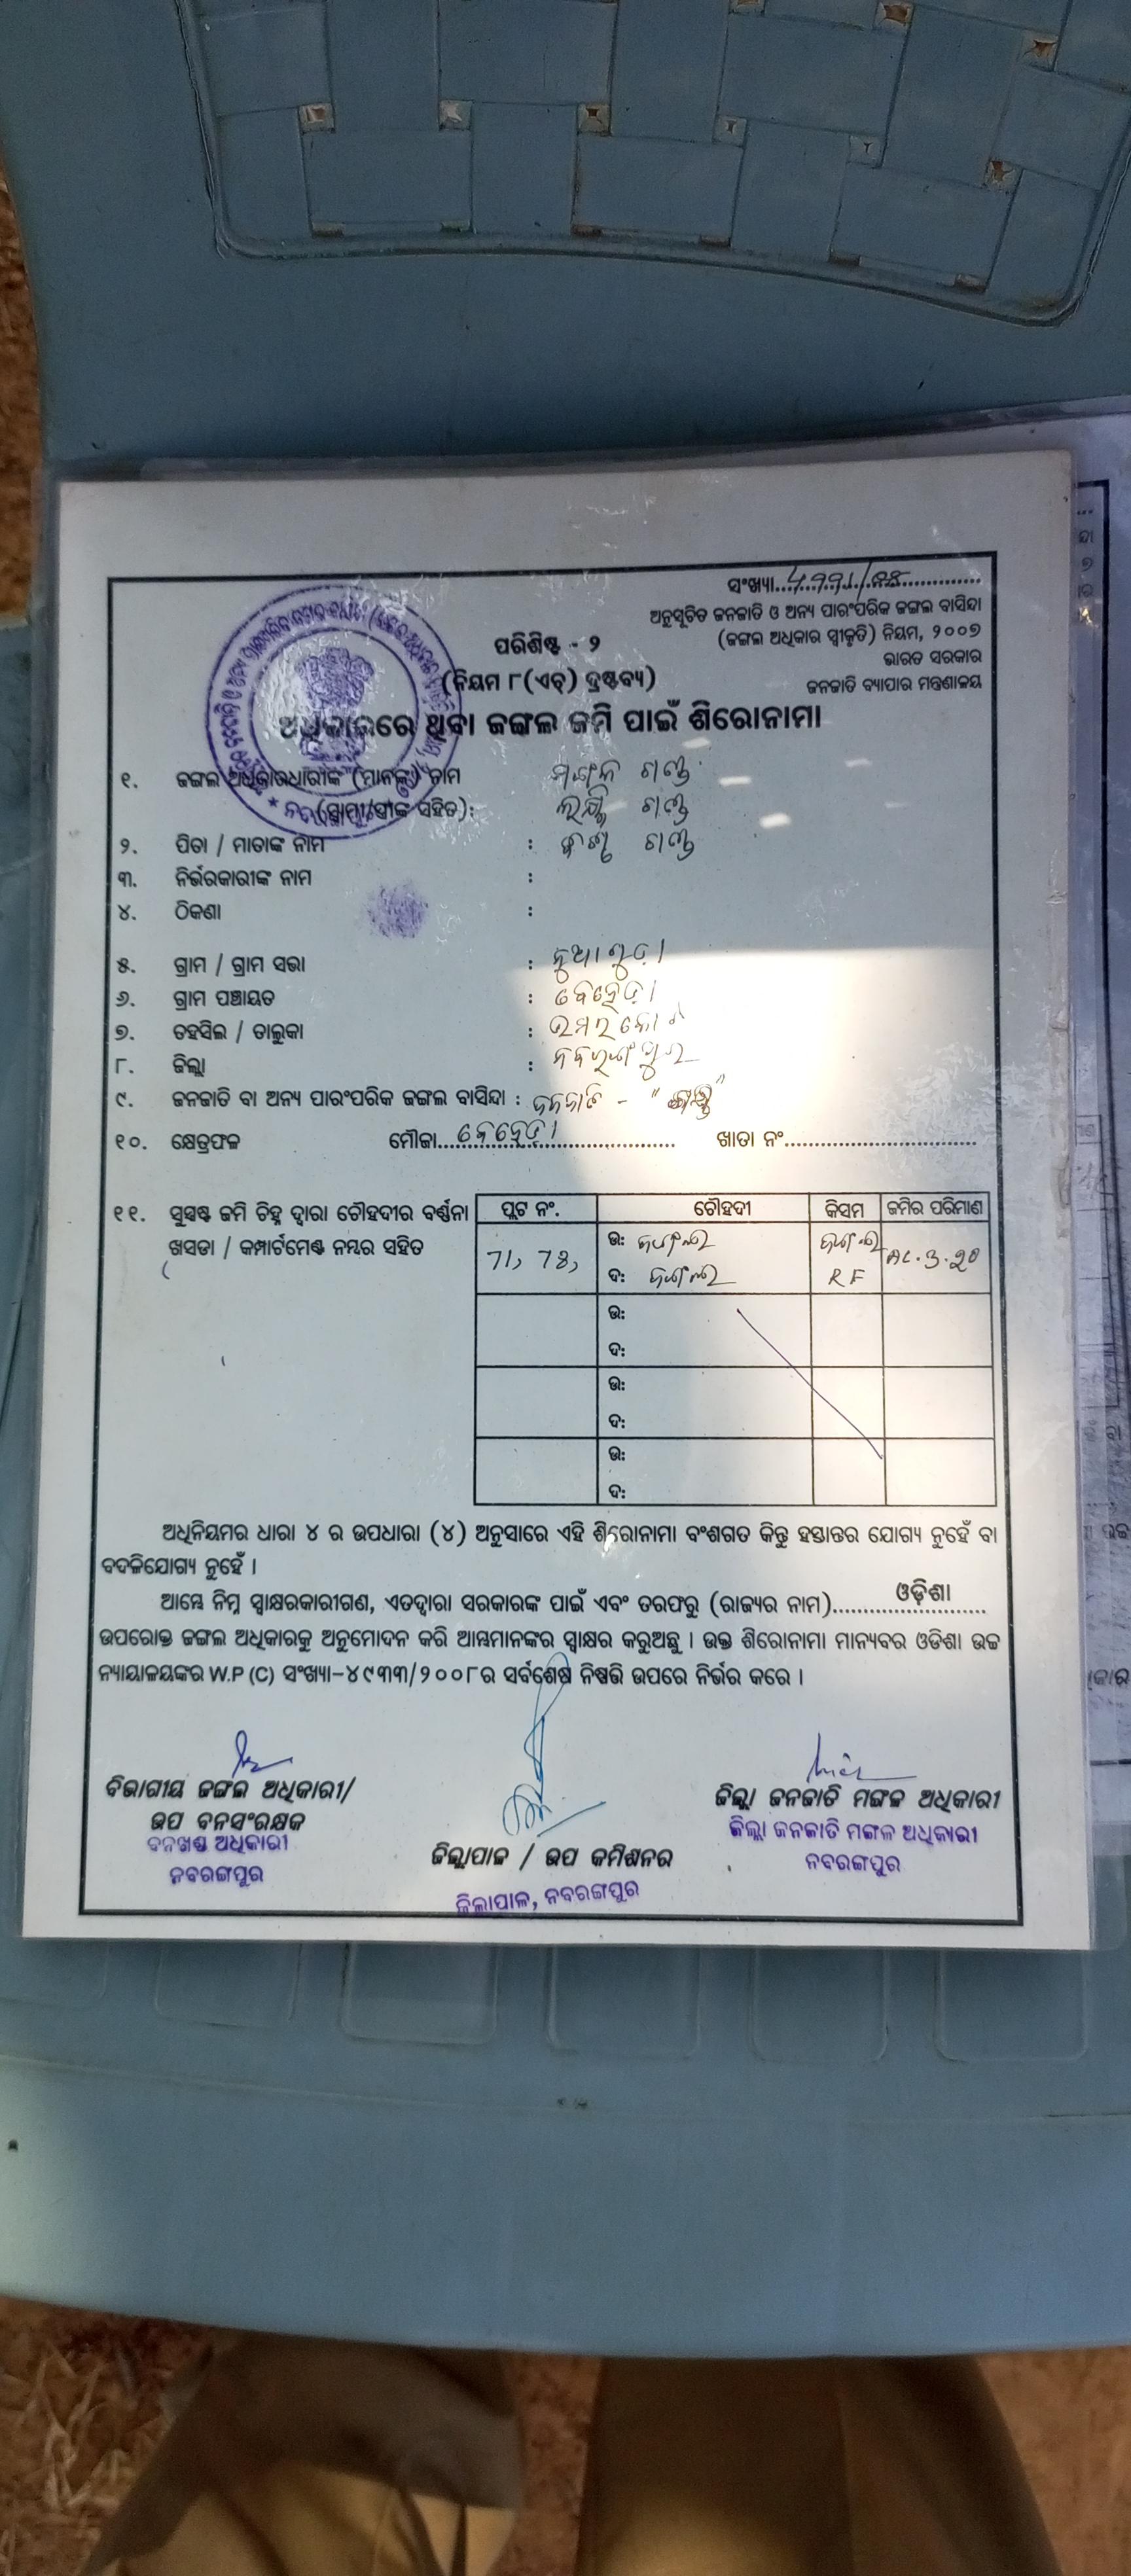 ସଂଖ୍ୟା....................
ଅନୁସୂଚିତ ଜନଜାତି ଓ ଅନ୍ୟ ପାରଂପରିକ ଜଙ୍ଗଲ ବାସିନ୍ଦା
(ଜଙ୍ଗଲ ଅଧିକାର ସ୍ୱୀକୃତି) ନିୟମ, ୨୦୦୭
ଭାରତ ସରକାର
ଜନଜାତି ବ୍ୟାପାର ମନ୍ତ୍ରଣାଳୟ
ପରିଶିଷ୍ଟ - ୨
(ନିୟମ ୮(ଏଚ୍) ଦ୍ରଷ୍ଟବ୍ୟ)
ଅଧିକାରରେ ଥିବା ଜଙ୍ଗଲ ଜମି ପାଇଁ ଶିରୋନାମା
୧. ଜଙ୍ଗଲ ଅଧିକାରଧାରୀଙ୍କ (ମାନଙ୍କ) ନାମ ମଙ୍ଗଳ ଗଣ୍ଡ
(ସ୍ୱାମୀ/ସ୍ତ୍ରୀଙ୍କ ସହିତ): ଗଣ୍ଡ
୨. ପିତା / ମାତାଙ୍କ ନାମ : ଗଣ୍ଡ
୩. ନିର୍ଭରକାରୀଙ୍କ ନାମ :
୪. ଠିକଣା :
୫. ଗ୍ରାମ / ଗ୍ରାମ ସଭା : ନୁଆଗୁଡ଼ା
୬. ଗ୍ରାମ ପଞ୍ଚାୟତ : ବେହେଡ଼ା
୭. ତହସିଲ / ତାଲୁକା : ଉମରକୋଟ
୮. ଜିଲ୍ଲା : ନବରଙ୍ଗପୁର
୯. ଜନଜାତି ବା ଅନ୍ୟ ପାରଂପରିକ ଜଙ୍ଗଲ ବାସିନ୍ଦା : ଜନଜାତି -
୧୦. କ୍ଷେତ୍ରଫଳ ମୌଜା...ବେହେଡ଼ା............... ଖାତା ନଂ.............................
୧୧. ସୁସ୍ପଷ୍ଟ ଜମି ଚିହ୍ନ ଦ୍ୱାରା ଚୌହଦୀର ବର୍ଣ୍ଣନା ପ୍ଲଟ ନଂ. ଚୌହଦୀ କିସମ ଜମିର ପରିମାଣ
ଖସଡା / କମ୍ପାର୍ଟମେଣ୍ଟ ନମ୍ବର ସହିତ 71, 78, ଉ: ଜଙ୍ଗଲ ଜଙ୍ଗଲ AC.3.20
ଦ: ଜଙ୍ଗଲ RF
ଉ:
ଦ:
ଉ:
ଦ:
ଉ:
ଦ:
ଅଧିନିୟମର ଧାରା ୪ ର ଉପଧାରା (୪) ଅନୁସାରେ ଏହି ଶିରୋନାମା ବଂଶଗତ କିନ୍ତୁ ହସ୍ତାନ୍ତର ଯୋଗ୍ୟ ନୁହେଁ ବା
ବଦଳିଯୋଗ୍ୟ ନୁହେଁ ।
ଆମ୍ଭେ ନିମ୍ନ ସ୍ୱାକ୍ଷରକାରୀଗଣ, ଏତଦ୍ୱାରା ସରକାରଙ୍କ ପାଇଁ ଏବଂ ତରଫରୁ (ରାଜ୍ୟର ନାମ)......ଓଡ଼ିଶା......
ଉପରୋକ୍ତ ଜଙ୍ଗଲ ଅଧିକାରକୁ ଅନୁମୋଦନ କରି ଆମ୍ଭମାନଙ୍କର ସ୍ୱାକ୍ଷର କରୁଅଛୁ । ଉକ୍ତ ଶିରୋନାମା ମାନ୍ୟବର ଓଡିଶା ଉଚ୍ଚ
ନ୍ୟାୟାଳୟଙ୍କର W.P (C) ସଂଖ୍ୟା-୪୯୩୩/୨୦୦୮ର ସର୍ବଶେଷ ନିଷ୍ପତ୍ତି ଉପରେ ନିର୍ଭର କରେ ।
ବିଭାଗୀୟ ଜଙ୍ଗଲ ଅଧିକାରୀ/
ଉପ ବନସଂରକ୍ଷକ
ବନଖଣ୍ଡ ଅଧିକାରୀ
ନବରଙ୍ଗପୁର
ଜିଲ୍ଲାପାଳ / ଉପ କମିଶନର
ଜିଲାପାଳ, ନବରଙ୍ଗପୁର
ଜିଲ୍ଲା ଜନଜାତି ମଙ୍ଗଳ ଅଧିକାରୀ
ଜିଲ୍ଲା ଜନଜାତି ମଙ୍ଗଳ ଅଧିକାରୀ
ନବରଙ୍ଗପୁର